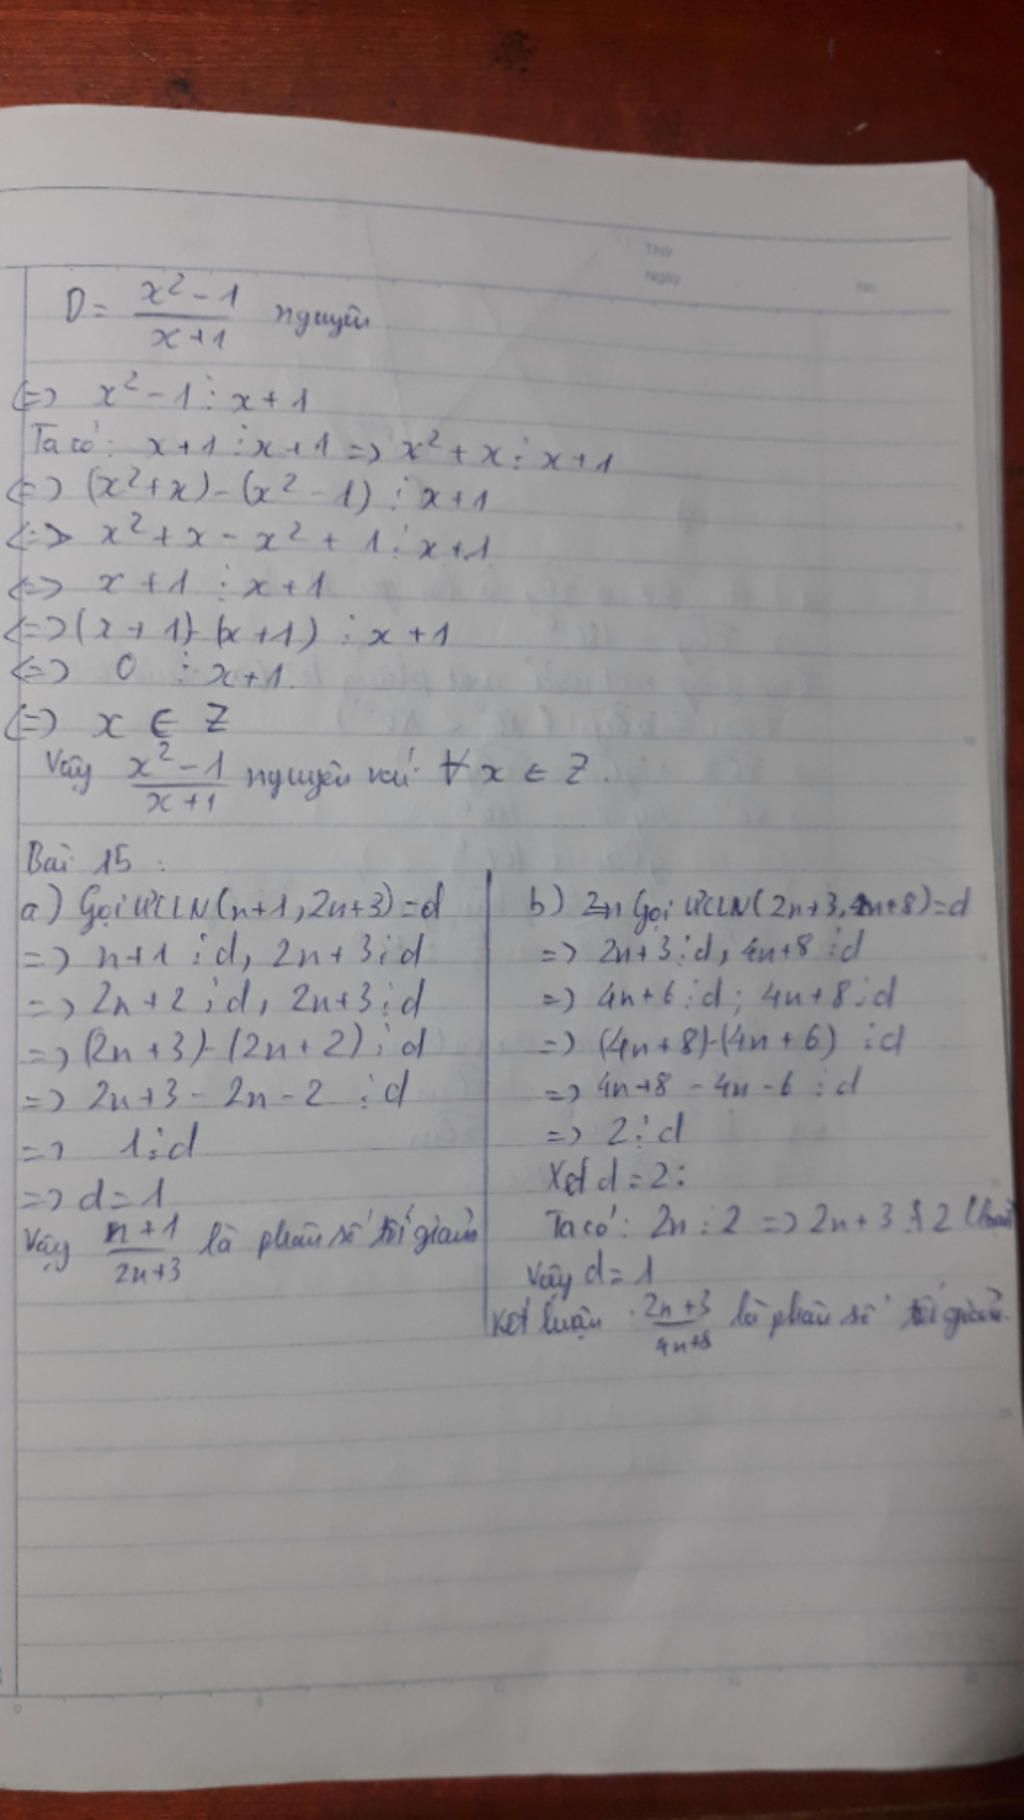 Thứ
Ngày
D = \frac{x² - 1}{x + 1} nguyên
<=> x² - 1 ⋮ x + 1
Ta có: x + 1 ⋮ x + 1 => x² + x ⋮ x + 1
<=> (x² + x) - (x² - 1) ⋮ x + 1
<=> x² + x - x² + 1 ⋮ x + 1
<=> x + 1 ⋮ x + 1
<=> (x + 1) - (x + 1) ⋮ x + 1
<=> 0 ⋮ x + 1.
<=> x ∈ Z
Vậy \frac{x² - 1}{x + 1} nguyên với ∀ x ∈ Z.
Bài 15:
a) Gọi ƯCLN(n+1, 2n+3) = d
=> n+1 ⋮ d, 2n+3 ⋮ d
=> 2n+2 ⋮ d, 2n+3 ⋮ d
=> (2n+3) - (2n+2) ⋮ d
=> 2n+3 - 2n-2 ⋮ d
=> 1 ⋮ d
=> d = 1
Vậy \frac{n+1}{2n+3} là phân số tối giản
b) Gọi ƯCLN(2n+3, 4n+8) = d
=> 2n+3 ⋮ d, 4n+8 ⋮ d
=> 4n+6 ⋮ d; 4n+8 ⋮ d
=> (4n+8) - (4n+6) ⋮ d
=> 4n+8 - 4n-6 ⋮ d
=> 2 ⋮ d
Xét d = 2:
Ta có: 2n ⋮ 2 => 2n+3 ⋮̸ 2
Vậy d = 1
Kết luận: \frac{2n+3}{4n+8} là phân số tối giản.
0 5 10